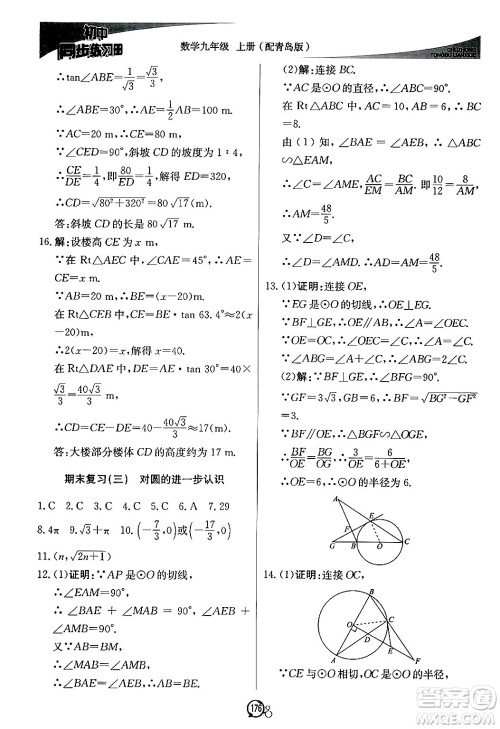 初中
同步练习册
数学九年级 上册（配青岛版）
CHUZHONG
TONGBU LIANXICE
∴tan∠ABE=1/√3=√3/3，
∴∠ABE=30°，∴AE=1/2AB=20 m，
∵AC=20 m，∴CE=80 m.
∵∠CED=90°，斜坡CD的坡度为1∶4，
∴CE/DE=1/4，即80/ED=1/4，解得ED=320 m，
∴CD=√(80²+320²)=80√17 m.
答：斜坡CD的长是80√17 m.
16.解：设楼高CE为x m，
∵在Rt△AEC中，∠CAE=45°，∴AE=CE=x，
∵AB=20，∴BE=(x−20)(m)，
在Rt△CEB中，CE=BE·tan 63.4°≈2(x−20)，
∴2(x−20)=x，解得x=40(m)，
在Rt△DAE中，DE=AE·tan 30°=40×
√3/3=40√3/3(m)，
∴CD=CE−DE=40−40√3/3≈17(m)，
答：大楼部分楼体CD的高度约为17 m.
期末复习(三) 对圆的进一步认识
1.C 2.C 3.A 4.C 5.C 6.A 7.29
8.4π 9.√3+π 10.(−7/3,0)或(−17/3,0)
11.(n,√(2n+1))
12.(1)证明：∵AP是⊙O的切线，
∴∠EAM=90°，
∴∠BAE+∠MAB=90°，∠AEB+∠AMB=90°.
又∵AB=BM，∴∠MAB=∠AMB，
∴∠BAE=∠AEB，∴AB=BE.
(2)解：连接BC.
∵AC是⊙O的直径，∴∠ABC=90°.
在Rt△ABC中，AC=10，AB=6，∴BC=8.
由(1)知，∠BAE=∠AEB，∴△ABC
∽△EAM，
∴∠C=∠AME，AC/EM=BC/AM，即10/12=8/AM，
∴AM=48/5.
又∵∠D=∠C，
∴∠D=∠AMD，∴AD=AM=48/5.
13.(1)证明：连接OE，
∵EG是⊙O的切线，∴OE⊥EG.
∵BF⊥GE，∴OE∥AB，∴∠A=∠OEC.
∵OE=OC，∴∠OEC=∠C，∴∠A=∠C.
∵∠ABG=∠A+∠C，∴∠ABG=2∠C.
(2)解：∵BF⊥GE，∴∠BFG=90°.
∵GF=3√3，GB=6，∴BF=√(BG²−GF²)
=3，
∵BF∥OE，∴△BGF∽△OGE，
∴BF/OE=BG/OG，∴3/OE=6/(6+OE)，∴OE=6，
∴⊙O的半径为6.
A
F
E
G
B
O
C
14.(1)证明：连接OC，
B
C
O
D
E
A
F
∵CE与⊙O相切，OC是⊙O的半径，
176
答案圈
MXQE.COM